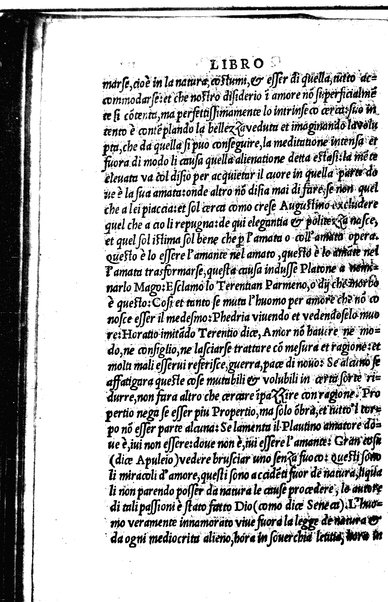 LIBRO
marse, cioè in la natura, costumi, & esser di quella, tutto ac-
commodarse: et che nostro disiderio ĩ amore nõ superficialmẽ
te si cõtenta, ma perfettissimamente lo intrinseco cerca: suo in
tento è contẽplando la bellezza veduta et imaginando la volu
pta, che da quella si puo conseguire, la meditatione intensa et
fuora di modo li causa quella alienatione detta estasi: la mẽte
eleuata va col disio per acquietar il cuore in quella parte do
ue è la sua amata: onde altro nõ disia mai di fare, se non quel
che a lei piaccia: et sol cerca como crese Augustino excludere
quel che a cio li repugna: de qui elegantia & politezza nasce,
et quel sol istima sol bene che p l'amata o coll'amata opera.
Questo è lo essere l'amante nel amato, questo è lo amãte nel
l'amata trasformarse, questa causa indusse Platone a nemi-
narlo Mago: Esclamo lo Terentian Parmeno, o dij che morbo
è questo: Cosi et tanto se muta l'huomo per amore che nõ co
nosce esser il medesmo: Phedria viuendo et vedendo se lo muo
re: Horatio imitãdo Terentio dice, Amor nõ hauere ne mo-
do, ne consiglio, ne lasciarse trattare cõ mesura et ragione: et
molti mali esserui referisce, guerra, pace di nouo: Se alcuno se
affatigara queste cose mutabili & volubili in certa sorte ri-
durre, non fara altro che cercare ĩpazzire con ragione: Pro
pertio nega se esser piu Propertio, ma solo õbra, et tutto l tem
po nõ esser parte alcuna: Se lamenta il Plautino amatore do
ue è, iui non essere: doue non è, iui essere l'amante: Gran cosa
(dice Apuleio) vedere brusciar uno senza fuoco: questi sono
li miracoli d'amore, questi sono accidẽti fuor de natura, liqua
li non parendo posser da natura le cause procedere, lo autore
di tali passioni è stato fatto Dio (como dice Seneca). L'huo-
mo veramente innamorato viue fuora la legge de natura &
da ogni mediocrita alieno, hora in souerchia letitia, hora in